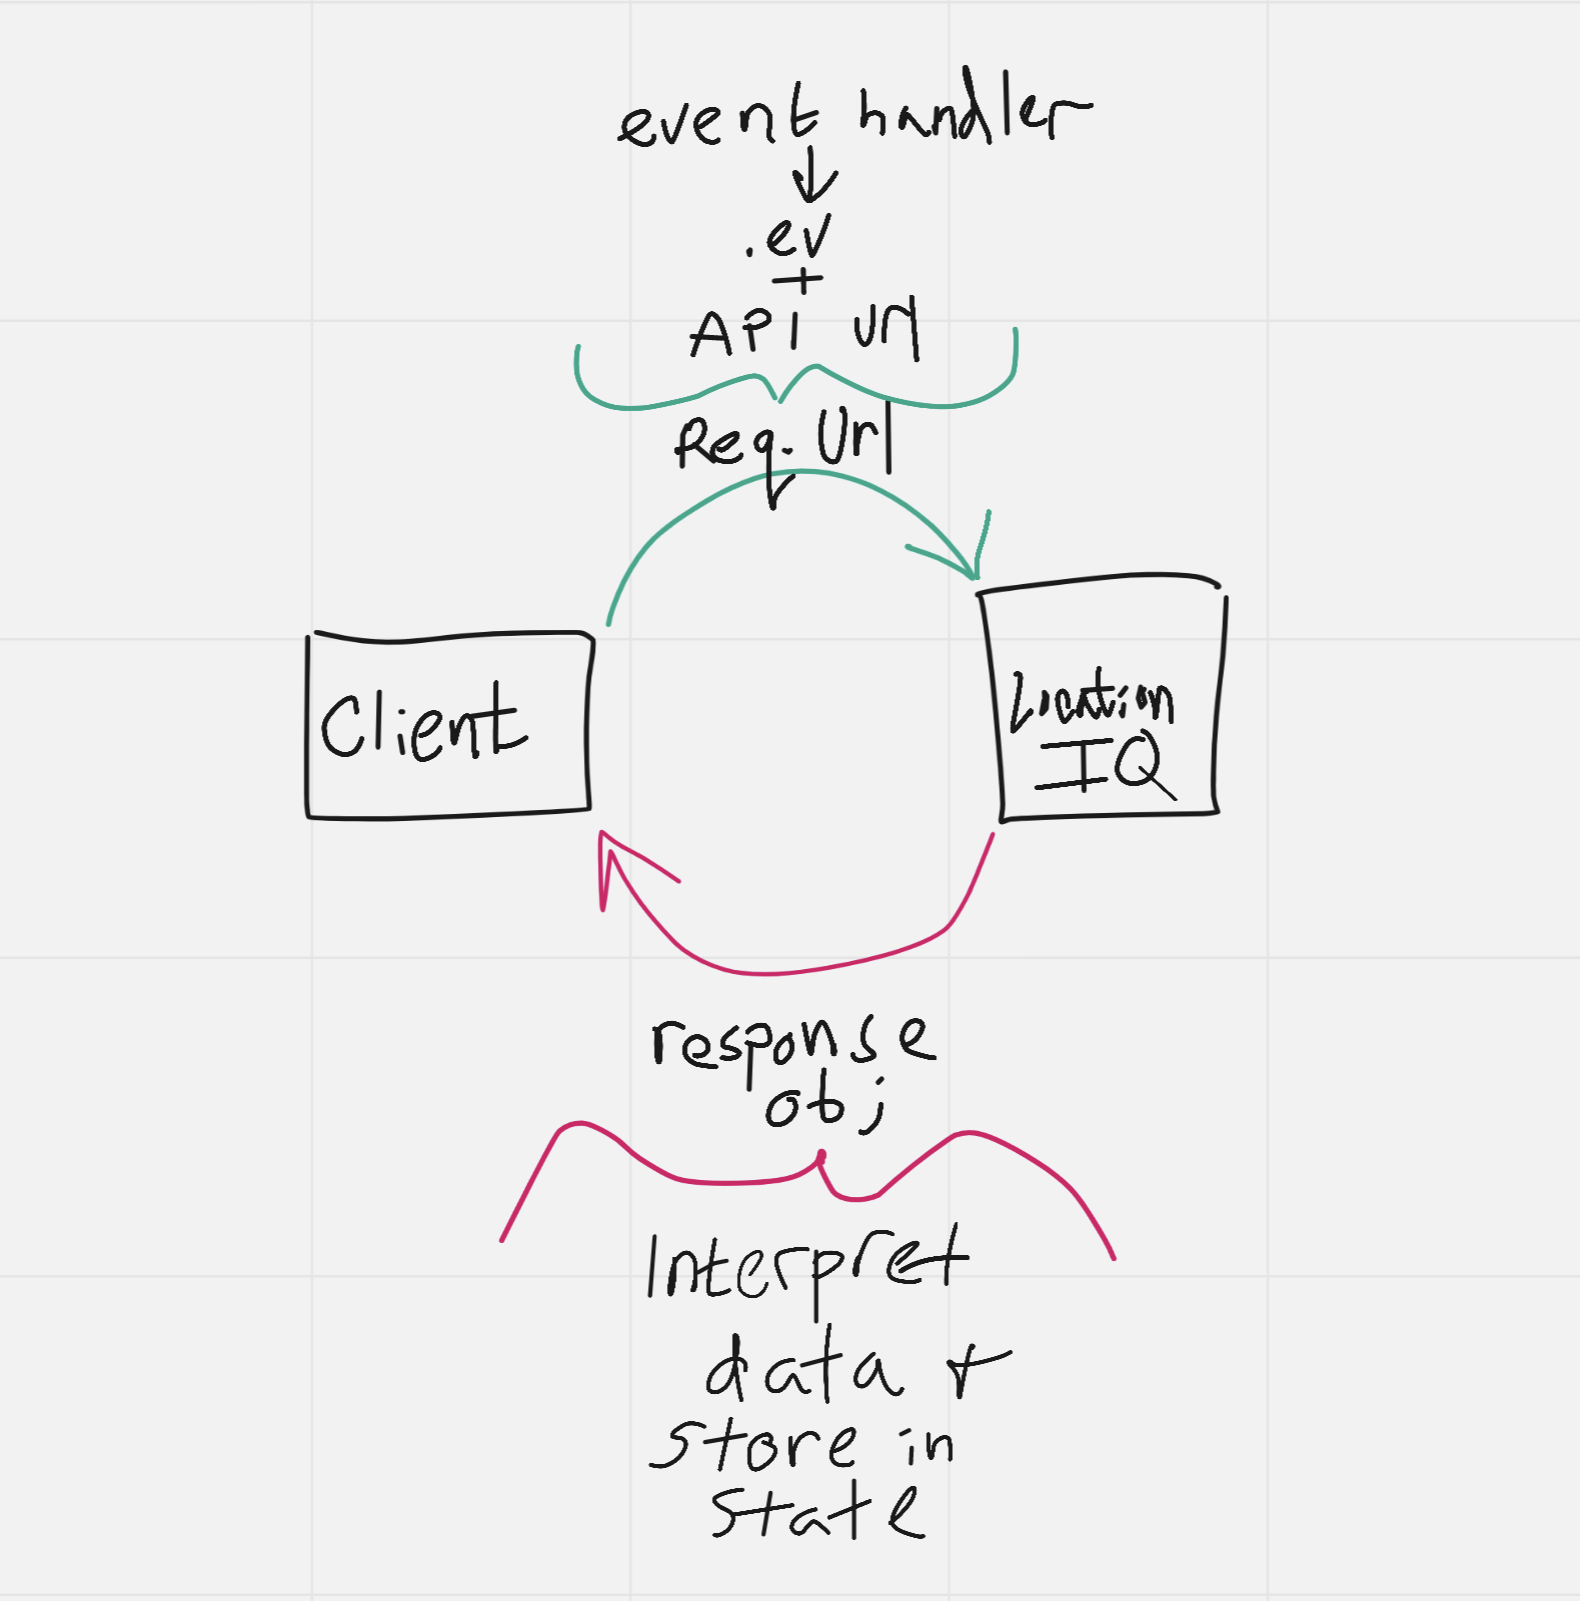 event handler
↓
.ev
+
API url
Req. Url
Client
Location
IQ
response
obj
Interpret
data +
store in
state